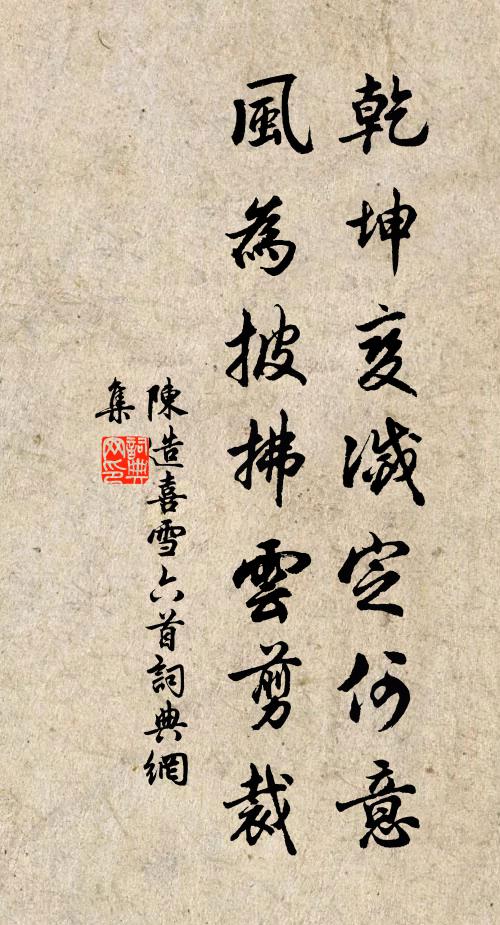 乾坤變滅定何意
風為披拂雲剪裁
陳造喜雪六首詞典網
集
詞典網印